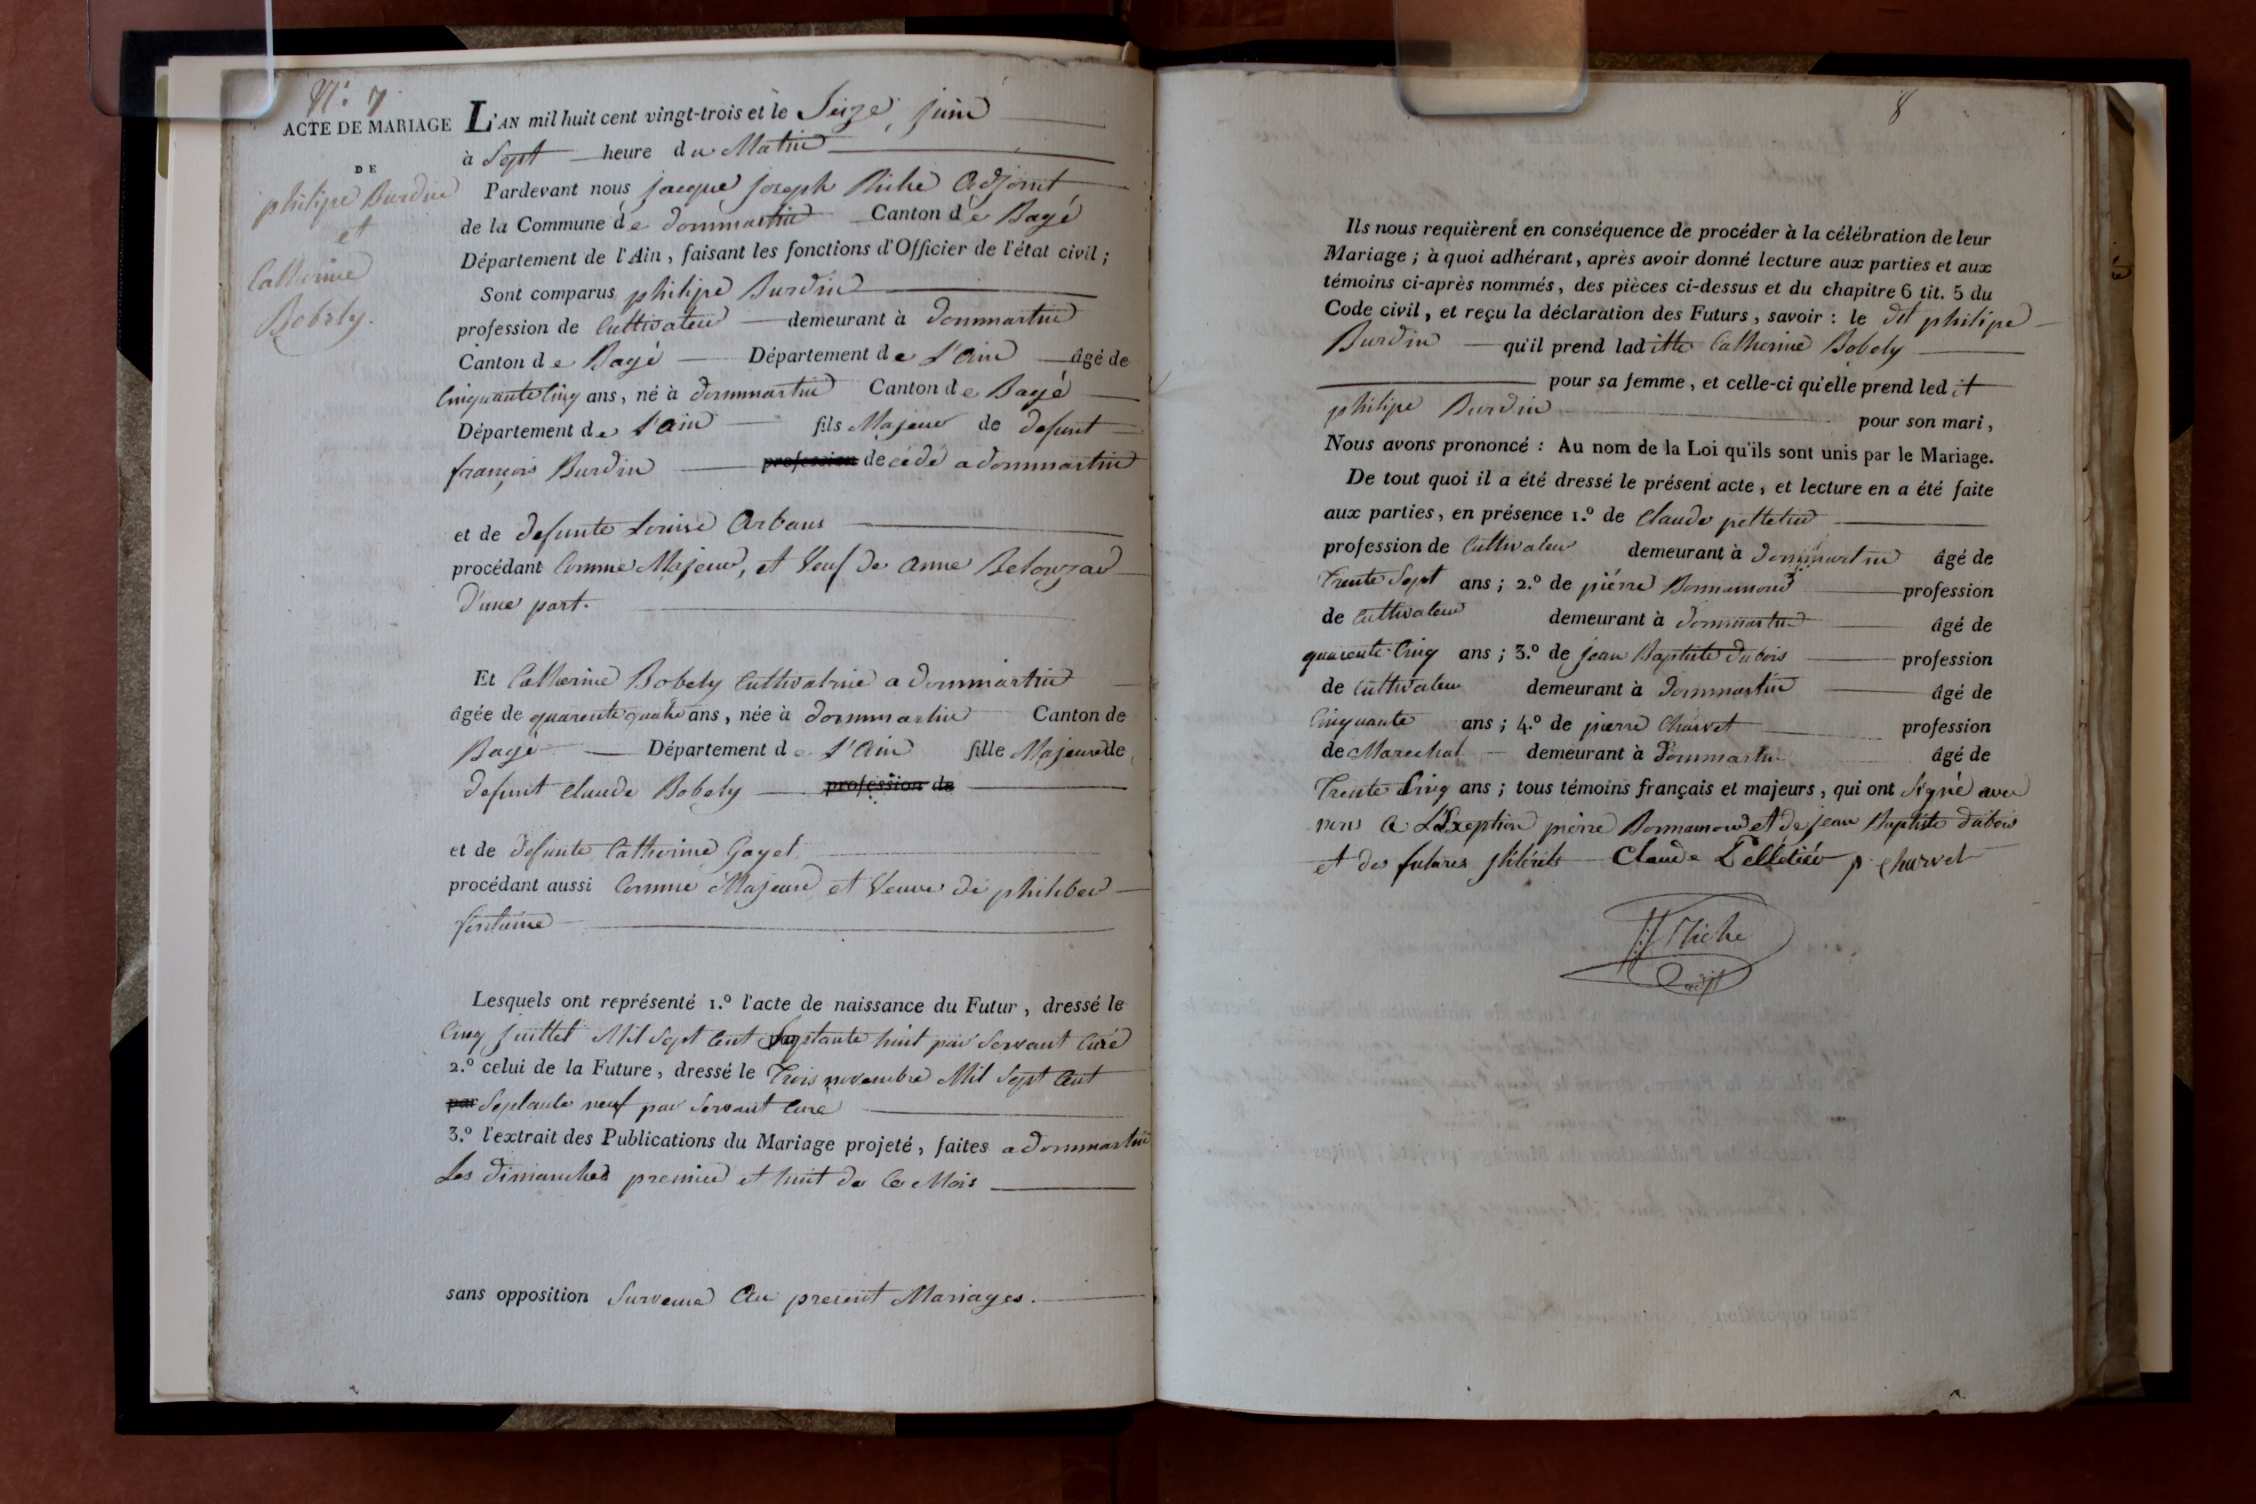 N.° 7
ACTE DE MARIAGE
DE
philipe Burdin
et
Catherine
Bobely.
L'AN mil huit cent vingt-trois et le Seize juin
à Sept heure du Matin
Pardevant nous jacque joseph Riche adjoint
de la Commune de dommartin Canton de Bagé
Département de l'Ain, faisant les fonctions d'Officier de l'état civil;
Sont comparus philipe Burdin
profession de Cultivateur demeurant à dommartin
Canton de Bagé Département de l'Ain âgé de
Cinquante Cinq ans, né à dommartin Canton de Bagé
Département de l'ain fils Majeur de defunt
françois Burdin profession decedé a dommartin
et de defunte Louise Arbans
procédant Comme Majeur, et Veuf de Anne
D'une part.
Et Catherine Bobely Cultivatrice a dommartin
âgée de quarente quatre ans, née à dommartin Canton de
Bagé Département de l'Ain fille Majeure de
defunt Claude Bobely profession de
et de defunte Catherine Gayet
procédant aussi Comme Majeure et Veuve de philiber
fontaine
Lesquels ont représenté 1.° l'acte de naissance du Futur, dressé le
Cinq juillet Mil Sept Cent Septante huit par Servant Curé
2.° celui de la Future, dressé le Trois novembre Mil Sept Cent
par Septante neuf par Servant Curé
3.° l'extrait des Publications du Mariage projeté, faites a dommartin
Les dimanches premier et huit de Ce Mois
sans opposition Survenue Au present Mariages.
8
Ils nous requièrent en conséquence de procéder à la célébration de leur
Mariage; à quoi adhérant, après avoir donné lecture aux parties et aux
témoins ci-après nommés, des pièces ci-dessus et du chapitre 6 tit. 5 du
Code civil, et reçu la déclaration des Futurs, savoir: le dit philipe
Burdin qu'il prend laditte Catherine Bobely
pour sa femme, et celle-ci qu'elle prend ledit
philipe Burdin pour son mari,
Nous avons prononcé: Au nom de la Loi qu'ils sont unis par le Mariage.
De tout quoi il a été dressé le présent acte, et lecture en a été faite
aux parties, en présence 1.° de Claude pelletier
profession de Cultivateur demeurant à dommartin âgé de
Trente Sept ans; 2.° de piérre Bonnamour profession
de Cultivateur demeurant à dommartin âgé de
quarente Cinq ans; 3.° de jean Baptiste dubois profession
de Cultivateur demeurant à dommartin âgé de
Cinquante ans; 4.° de pierre Charvet profession
de Marechal demeurant à Dommartin âgé de
Trente Cinq ans; tous témoins français et majeurs, qui ont Signé avec
nous A L'Exeption pierre Bonnamour et de jean Baptiste dubois
et des futures jllérés Claude Pelletiér p. Charvet
Riche